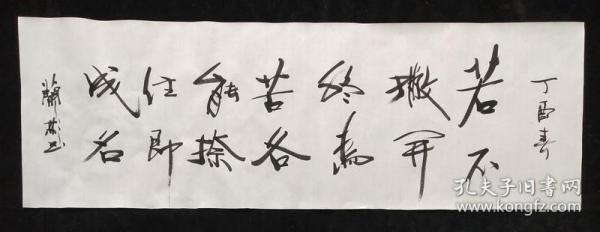 丁酉春
若不
撇开
终為
苦各
能捺
住即
成名
孔夫子旧书网
www.kongfz.com